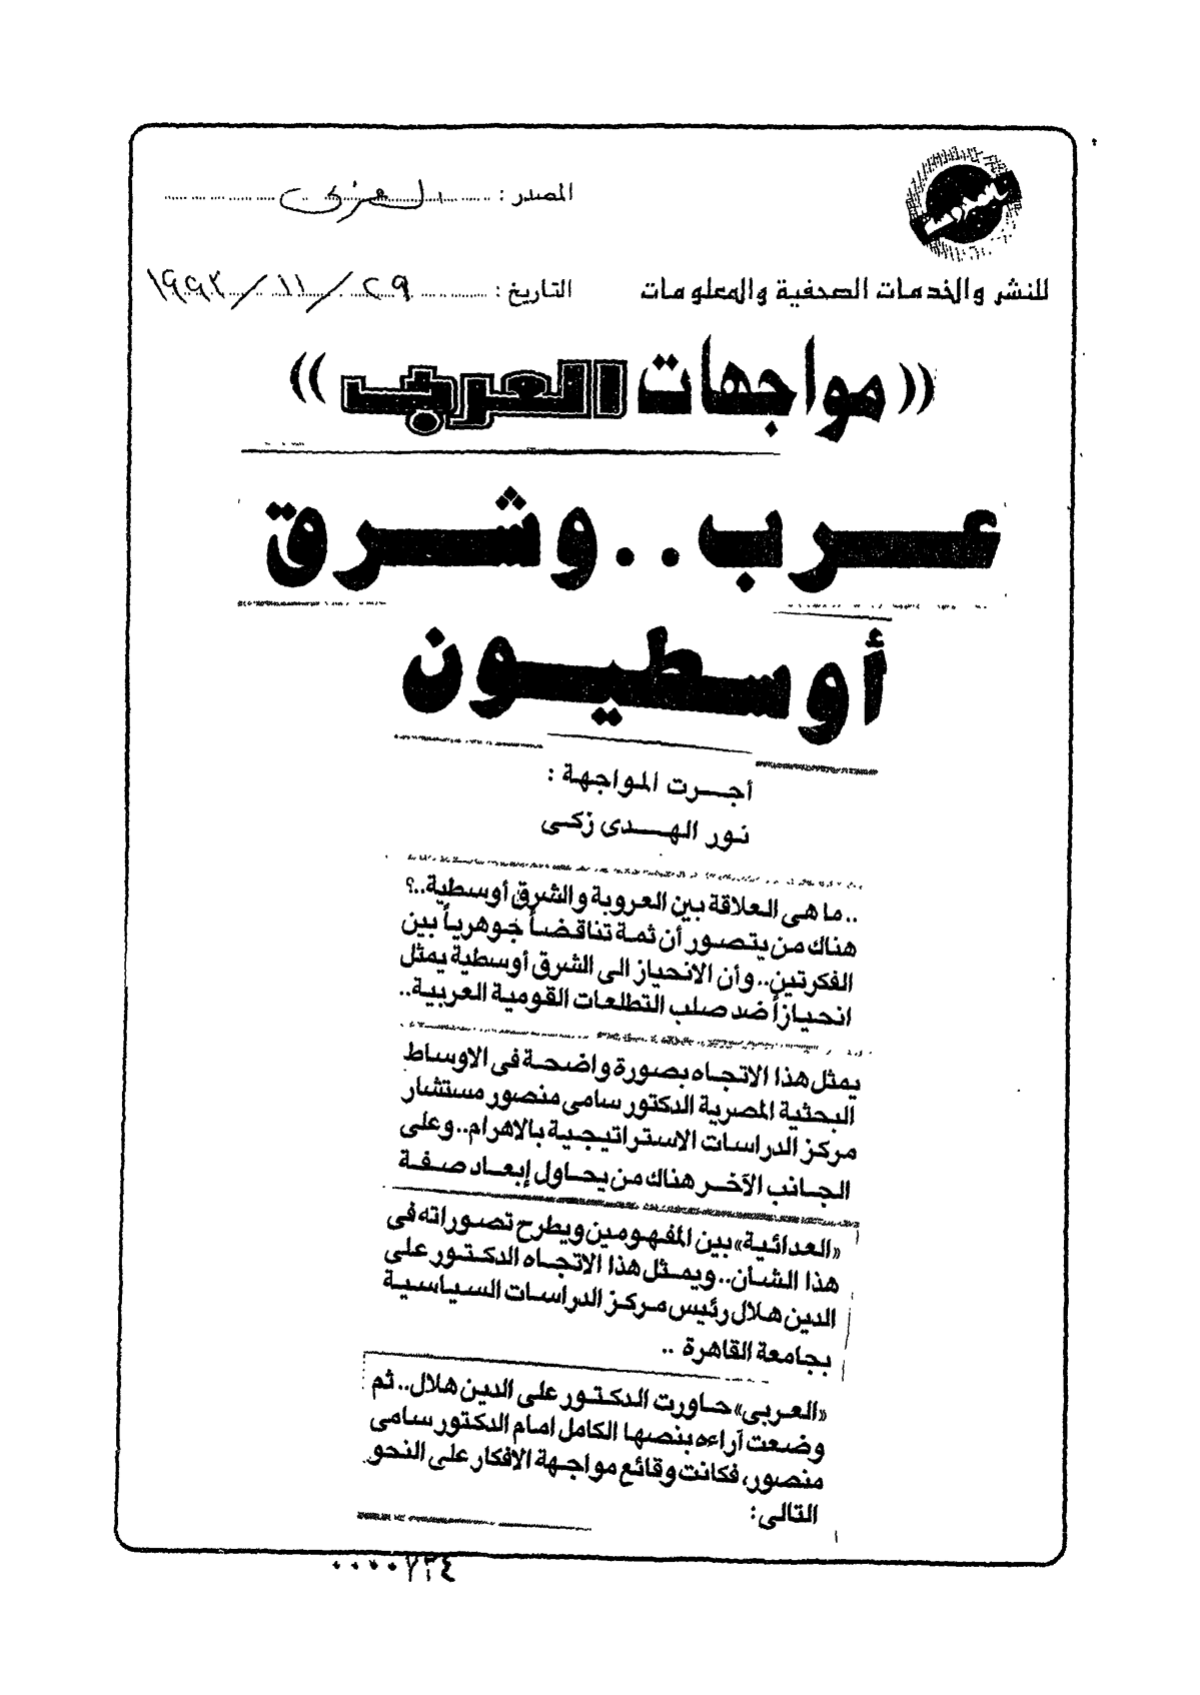 المصدر : العربى
التاريخ : ٢٩ / ١١ / ١٩٩٣
للنشر والخدمات الصحفية والمعلومات
((مواجهات العربى))
عرب .. وشرق
أوسطيون
أجرت المواجهة :
نور الهدى زكى
.. ما هى العلاقة بين العروبة والشرق أوسطية..؟
هناك من يتصور أن ثمة تناقضاً جوهرياً بين
الفكرتين.. وأن الانحياز الى الشرق أوسطية يمثل
انحيازاً ضد صلب التطلعات القومية العربية..
يمثل هذا الاتجاه بصورة واضحة فى الاوساط
البحثية المصرية الدكتور سامى منصور مستشار
مركز الدراسات الاستراتيجية بالاهرام.. وعلى
الجانب الآخر هناك من يحاول إبعاد صفة
«العدائية» بين المفهومين ويطرح تصوراته فى
هذا الشأن.. ويمثل هذا الاتجاه الدكتور على
الدين هلال رئيس مركز الدراسات السياسية
بجامعة القاهرة ..
«العربى» حاورت الدكتور على الدين هلال.. ثم
وضعت آراءه بنصها الكامل امام الدكتور سامى
منصور، فكانت وقائع مواجهة الافكار على النحو
التالى:
٠٠٠٠٧٣٤